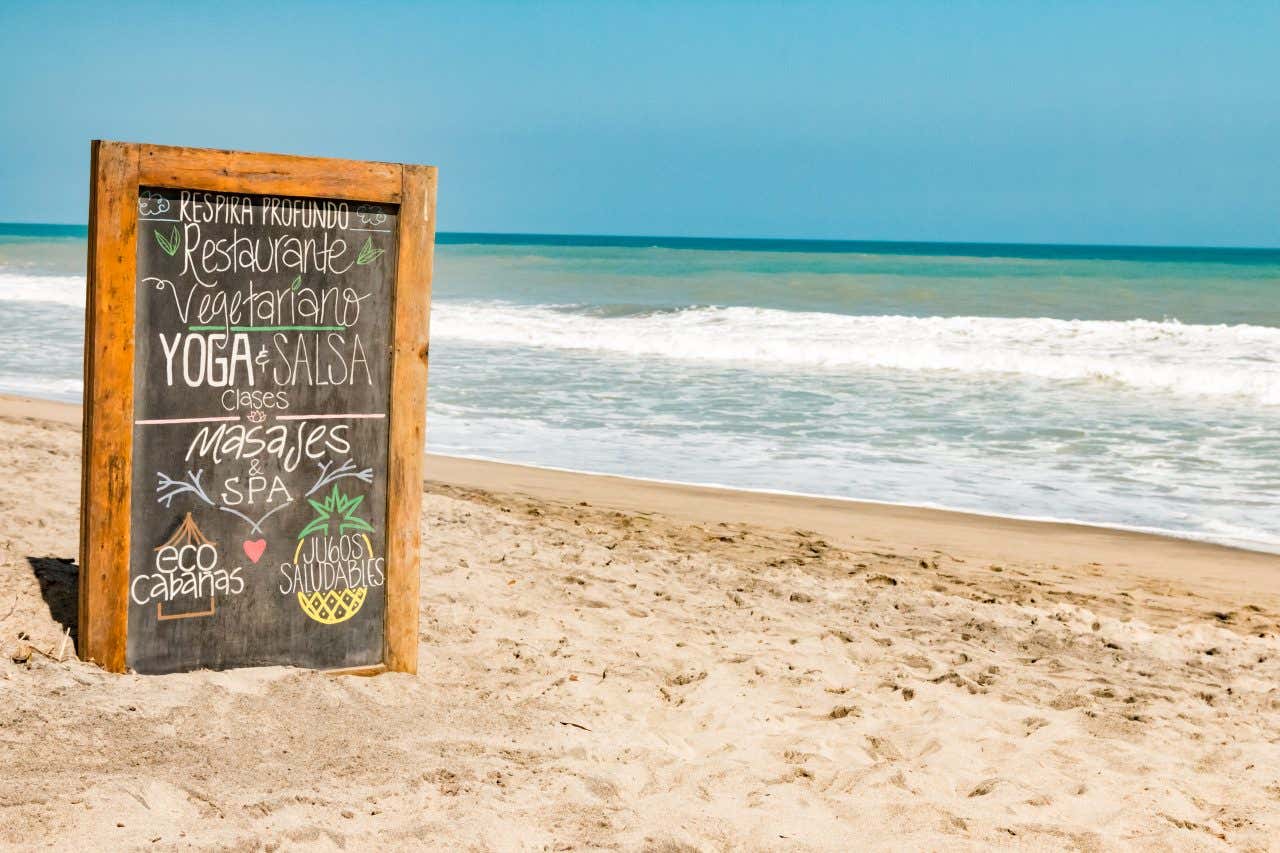 RESPIRA PROFUNDO
Restaurante
Vegetariano
YOGA & SALSA
clases
Masajes
&
SPA
eco
cabañas
JUGOS
SALUDABLES